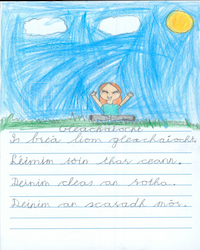 Gleacaíocht
Is breá liom gleacaíocht.
Déinim tóin thar ceann.
Deinim cleas an rotha.
Deinim an scaradh mór.